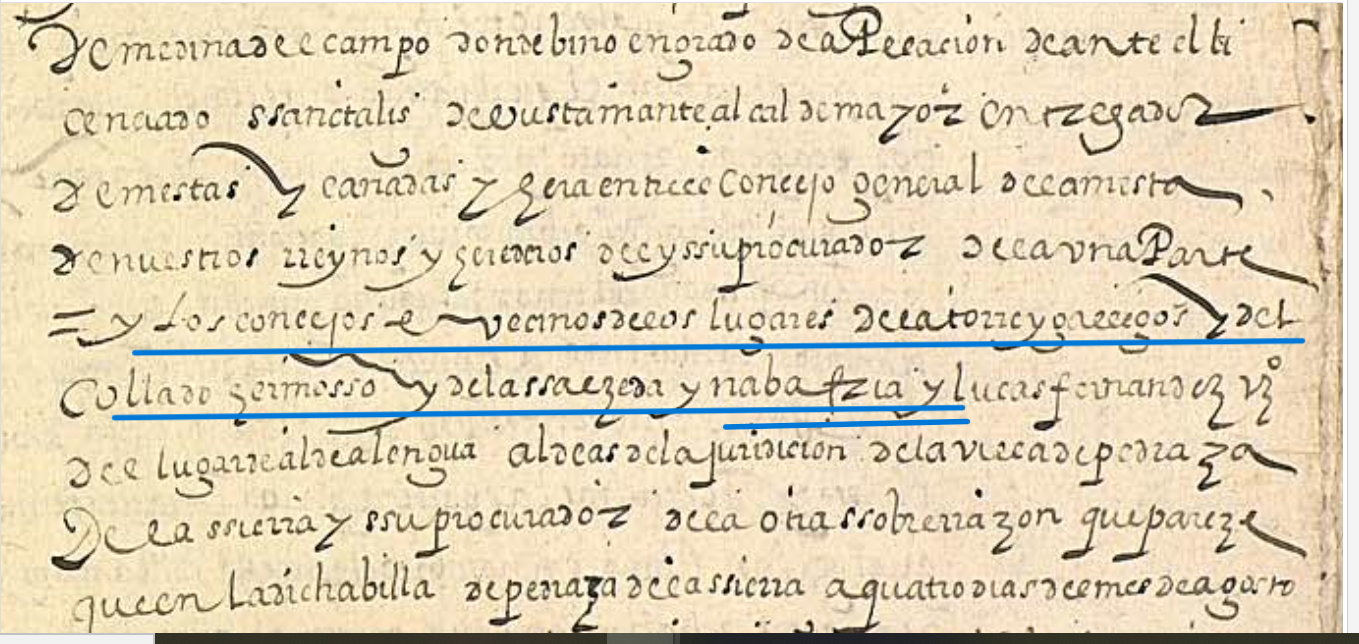 De medina de el campo donde bino en grado de apelacion de ante el li
cenciado ssanctalis de bustamante alcalde mayor entregador
de mestas y cañadas y hera entre el Concejo general de la mesta
de nuestros rreynos y señorios de el y ssu procurador de la una Parte
= y Los concejos e vecinos de los lugares de la torre y gallegos y del
Collado hermosso y de la ssalzeda y naba fria y lucas fernandez vzº
de el lugar de aldealengua aldeas de la juridicion de la villa de pedraza
De la ssierra y ssu procurador de la otra ssobre rrazon que pareze
que en La dicha billa de pedraza de la ssierra a quatro dias de el mes de agosto